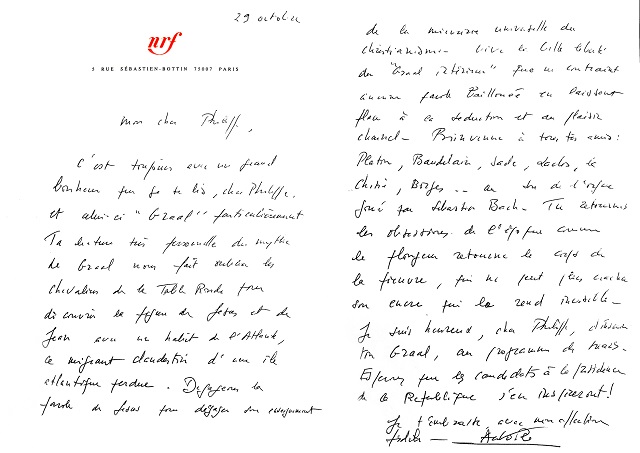 29 octobre
nrf
5 RUE SÉBASTIEN-BOTTIN 75007 PARIS
Mon cher Philippe,
C'est toujours avec un grand
bonheur que je te lis, cher Philippe,
et celui-ci "Graal" particulièrement
Ta lecture très personnelle du mythe
de Graal nous fait oublier les
chevaliers de la Table Ronde pour
découvrir la figure de Jésus et de
Jean avec un habit de l'Atlante,
ce migrant clandestin d'une île
atlantique perdue. Dégageons la
parole de Jésus pour dégager son enseignement
de la mémoire universelle du
christianisme. Vive la belle liberté
du "Graal intérieur" que ne contraint
aucune parole bâillonnée en laissant
place à la séduction et au plaisir
charnel - Bienvenue à tous tes amis :
Platon, Baudelaire, Sade, le
Christ, Borges -- au son de l'orgue
joué par Sébastien Bach. Tu retournes
les obsessions de l'époque comme
le plongeur retourne le corps de
la pieuvre, qui ne peut plus cracher
son encre qui la rend invisible -
Je suis heureux, cher Philippe,
ton Graal, au programme de
Espérons que les candidats à la présidence
de la République s'en inspireront !
Je t'embrasse avec mon affection
fidèle -